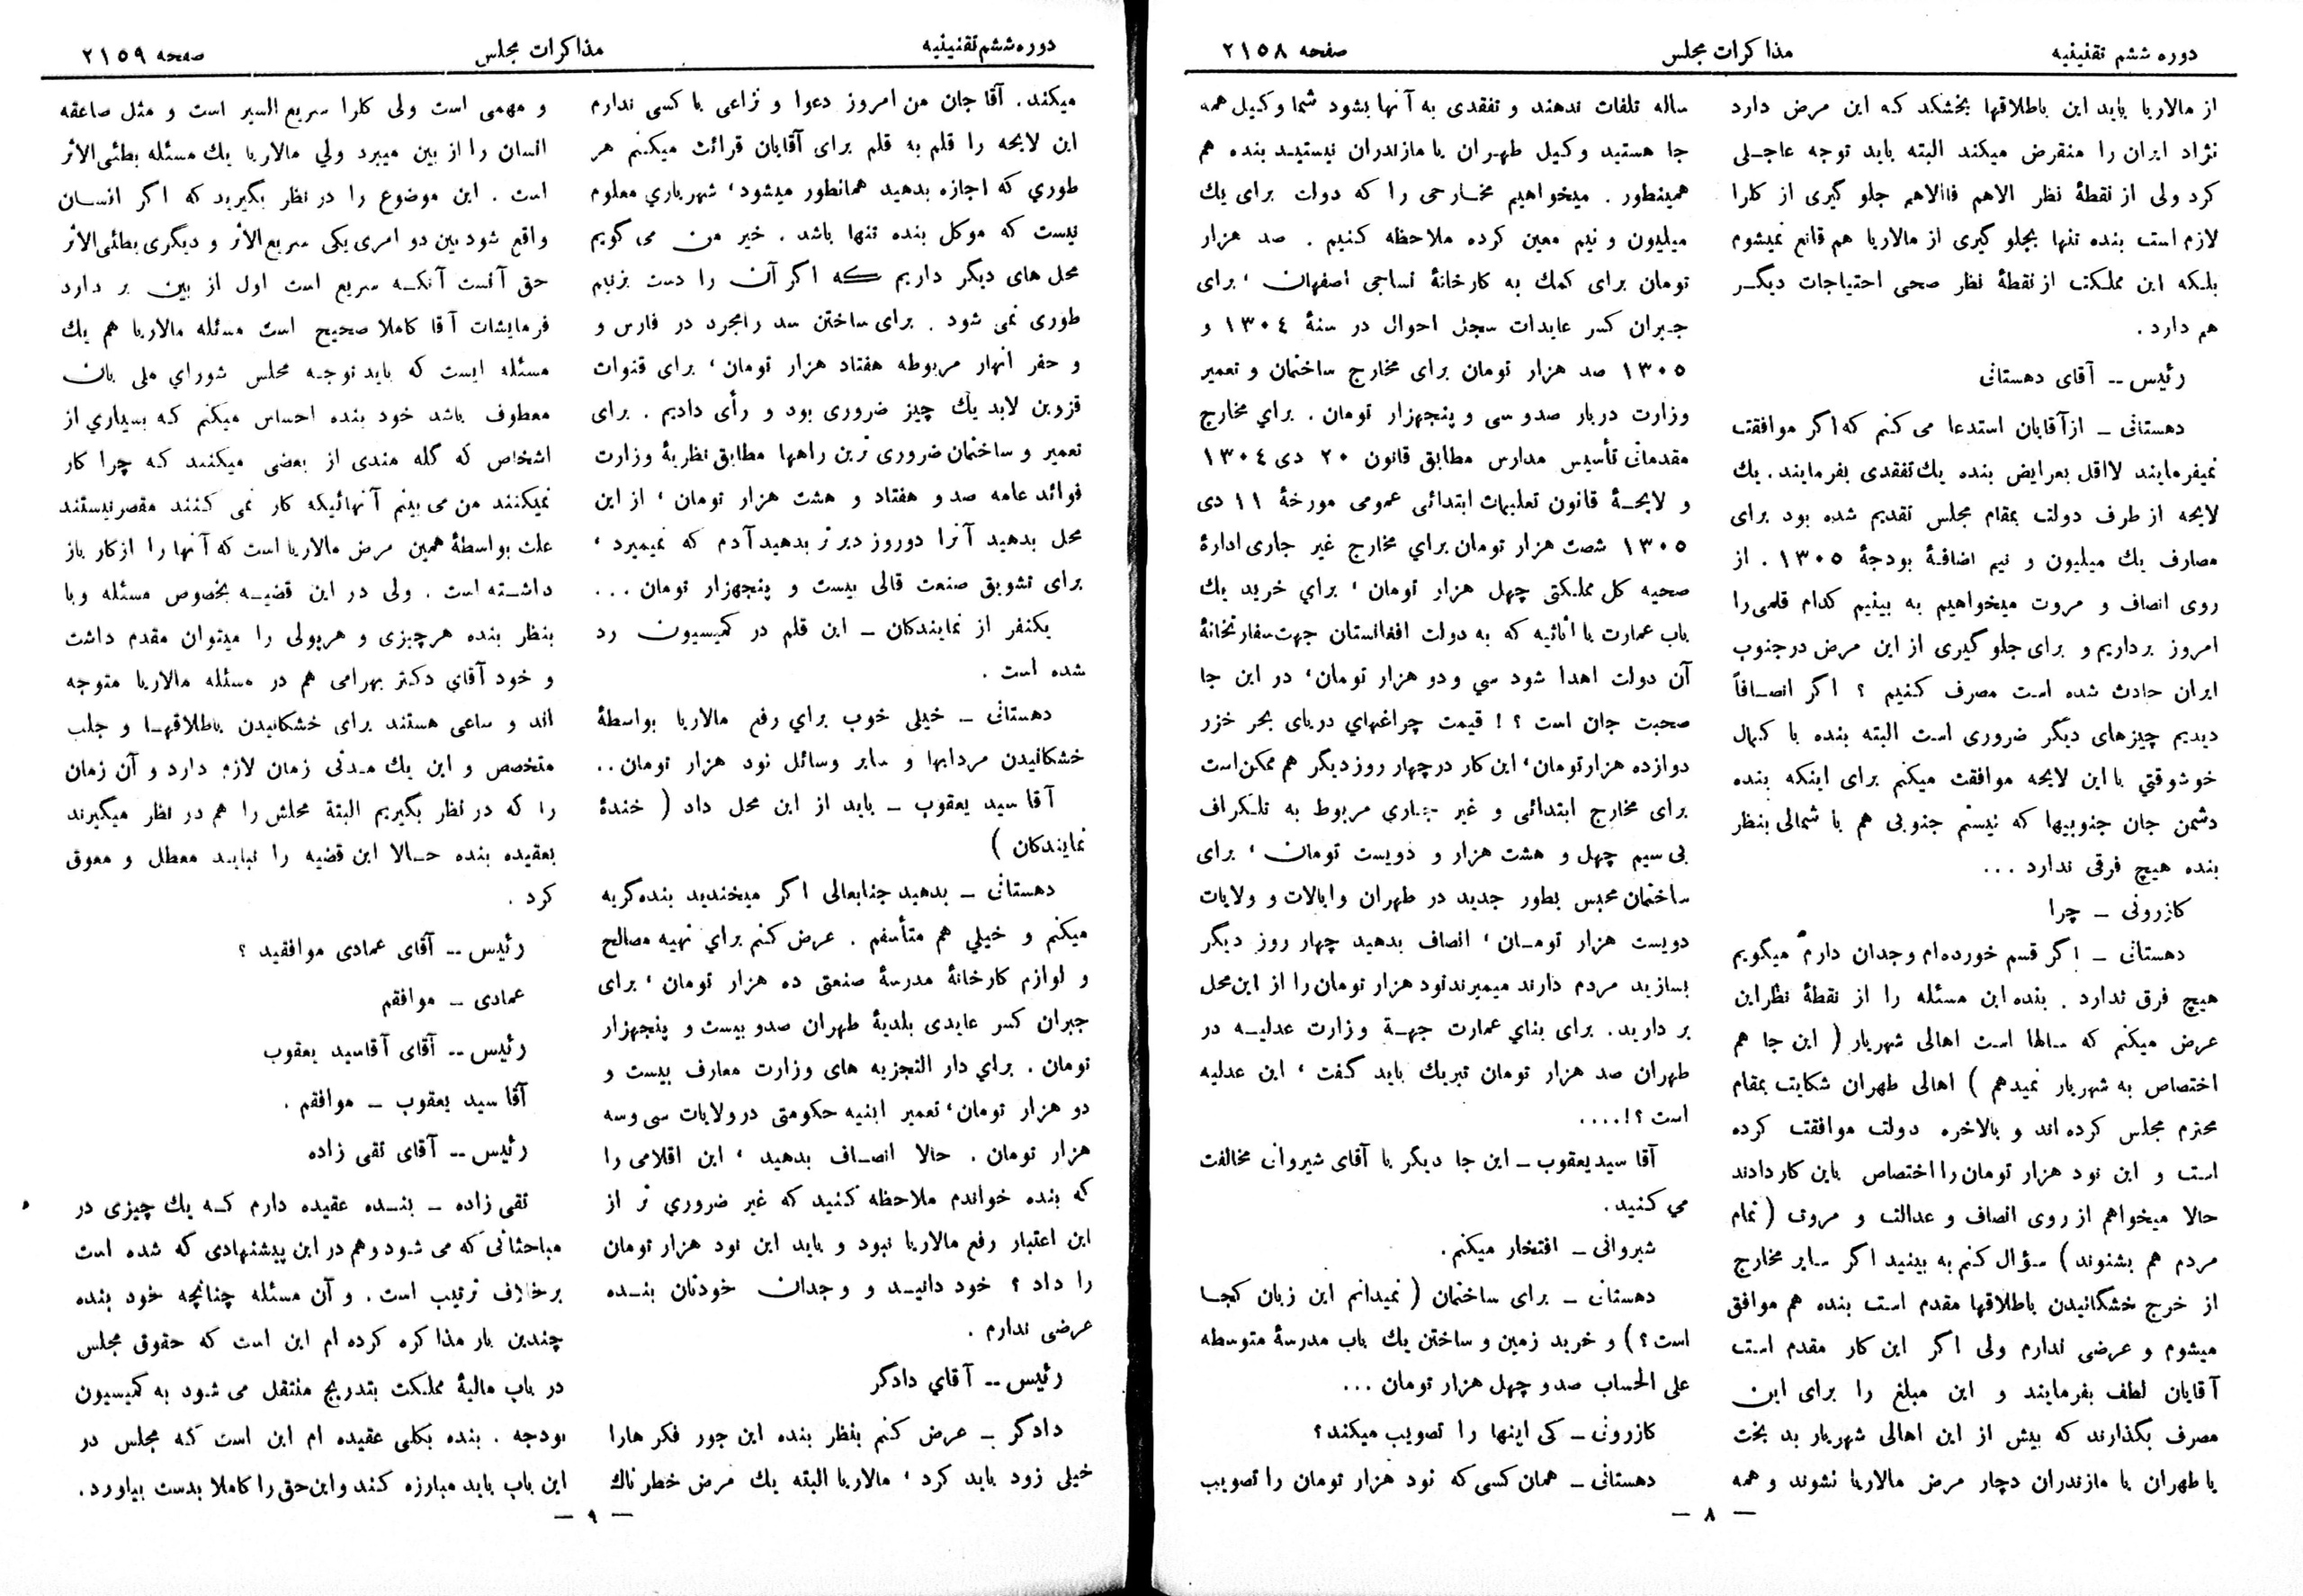 دوره ششم تقنینیه
مذاکرات مجلس
صفحه ۲۱۵۸
از مالاریا باید این باطلاقها بخشکد که این مرض دارد
نژاد ایران را منقرض میکند البته باید توجه عاجلی
کرد ولی از نقطهٔ نظر الاهم فالاهم جلو گیری از کلرا
لازم است بنده تنها بجلو گیری از مالاریا هم قانع نمیشوم
بلکه این مملکت از نقطهٔ نظر صحی احتیاجات دیگر
هم دارد .
رئیس -- آقای دهستانی
دهستانی - از آقایان استدعا می کنم که اگر موافقت
نمیفرمایند لااقل بعرایض بنده یك تفقدی بفرمایند . یك
لایحه از طرف دولت بمقام مجلس تقدیم شده بود برای
مصارف یك میلیون و نیم اضافهٔ بودجهٔ ۱۳۰۵ . از
روی انصاف و مروت میخواهیم به بینیم کدام قلمی را
امروز برداریم و برای جلو گیری از این مرض در جنوب
ایران حادث شده است مصرف کنیم ؟ اگر انصافاً
دیدیم چیزهای دیگر ضروری است البته بنده با کمال
خوشوقتي با این لایحه موافقت میکنم برای اینکه بنده
دشمن جان جنوبیها که نیستم جنوبی هم با شمالی بنظر
بنده هیچ فرقی ندارد ...
کازرونی - چرا
دهستانی - اگر قسم خورده ام وجدان دارم میگویم
هیچ فرق ندارد . بنده این مسئله را از نقطهٔ نظر این
عرض میکنم که سالها است اهالی شهریار ( این جا هم
اختصاص به شهریار نمیدهم ) اهالی طهران شکایت بمقام
محترم مجلس کرده اند و بالاخره دولت موافقت کرده
است و این نود هزار تومان را اختصاص باین کار دادند
حالا میخواهم از روی انصاف و عدالت و مروت ( تمام
مردم هم بشنوند ) سؤال کنم به بینید اگر سایر مخارج
از خرج خشگانیدن باطلاقها مقدم است بنده هم موافق
میشوم و عرضی ندارم ولی اگر این کار مقدم است
آقایان لطف بفرمایند و این مبلغ را برای این
مصرف بگذارند که بیش از این اهالی شهریار بد بخت
یا طهران یا مازندران دچار مرض مالاریا نشوند و همه
ساله تلفات ندهند و تفقدی به آنها بشود شما وکیل همه
جا هستید وکیل طهران یا مازندران نیستید بنده هم
همینطور . میخواهیم مخارجی را که دولت برای یك
میلیون و نیم معین کرده ملاحظه کنیم . صد هزار
تومان برای کمك به کارخانهٔ نساجی اصفهان ، برای
جبران کسر عایدات سجل احوال در سنهٔ ۱۳۰٤ و
۱۳۰۵ صد هزار تومان برای مخارج ساختمان و تعمیر
وزارت دربار صدو سی و پنجهزار تومان . براي مخارج
مقدماتی تأسیس مدارس مطابق قانون ۲۰ دی ۱۳۰٤
و لایحهٔ قانون تعلیمات ابتدائی عمومی مورخهٔ ۱۱ دی
۱۳۰۵ شصت هزار تومان براي مخارج غیر جاری ادارهٔ
صحیه کل مملکتی چهل هزار تومان ، براي خرید یك
باب عمارت با اثاثیه که به دولت افغانستان جهت سفارتخانهٔ
آن دولت اهدا شود سي و دو هزار تومان ، در این جا
صحبت جان است ؟ ! قیمت چراغهاي دریای بحر خزر
دوازده هزار تومان ، این کار در چهار روز دیگر هم ممکن است
برای مخارج ابتدائی و غیر جاري مربوط به تلگراف
بی سیم چهل و هشت هزار و دویست تومان ، برای
ساختمان محبس بطور جدید در طهران و ایالات و ولایات
دویست هزار تومان ، انصاف بدهید چهار روز دیگر
بسازید مردم دارند میمیرند نود هزار تومان را از این محل
بر دارید . برای بناي عمارت جهة وزارت عدلیه در
طهران صد هزار تومان تبریك باید گفت ، این عدلیه
است ؟ ! ....
آقا سید یعقوب - این جا دیگر با آقای شیروانی مخالفت
می کنید .
شیروانی - افتخار میکنم .
دهستانی - برای ساختمان ( نمیدانم این زبان کجا
است ؟ ) و خرید زمین و ساختن یك باب مدرسهٔ متوسطه
علی الحساب صدو چهل هزار تومان ...
کازرونی - کی اینها را تصویب میکند ؟
دهستانی - همان کسی که نود هزار تومان را تصویب
— ۸ —
دوره ششم تقنینیه
مذاکرات مجلس
صفحه ۲۱۵۹
میکند . آقا جان من امروز دعوا و نزاعی با کسی ندارم
این لایحه را قلم به قلم برای آقایان قرائت میکنم هر
طوري که اجازه بدهید همانطور میشود ، شهریاري معلوم
نیست که موکل بنده تنها باشد . خیر من می گویم
محل های دیگر داریم که اگر آن را دست بزنیم
طوری نمی شود . برای ساختن سد رامجرد در فارس و
و حفر انهار مربوطه هفتاد هزار تومان ، برای قنوات
قزوین لابد یك چیز ضروری بود و رأی دادیم . برای
تعمیر و ساختمان ضروری ترین راهها مطابق نظریهٔ وزارت
فوائد عامه صد و هفتاد و هشت هزار تومان ، از این
محل بدهید آنرا دوروز دیر تر بدهید آدم که نمیمیرد ،
برای تشویق صنعت قالی بیست و پنجهزار تومان ...
یکنفر از نمایندگان - این قلم در کمیسیون رد
شده است .
دهستانی - خیلی خوب براي رفع مالاریا بواسطهٔ
خشکانیدن مردابها و سایر وسائل نود هزار تومان ..
آقا سید یعقوب - باید از این محل داد ( خندهٔ
نمایندگان )
دهستانی - بدهید جنابعالی اگر میخندید بنده گریه
میکنم و خیلي هم متأسفم . عرض کنم براي تهیه مصالح
و لوازم کارخانهٔ مدرسهٔ صنعتی ده هزار تومان ، برای
جبران کسر عایدی بلدیهٔ طهران صدو بیست و پنجهزار
تومان . براي دار التجزیه های وزارت معارف بیست و
دو هزار تومان ، تعمیر ابنیه حکومتی در ولایات سی وسه
هزار تومان . حالا انصاف بدهید ، این اقلامی را
که بنده خواندم ملاحظه کنید که غیر ضروري تر از
این اعتبار رفع مالاریا نبود و باید این نود هزار تومان
را داد ؟ خود دانید و وجدان خودتان بنده
عرضی ندارم .
رئیس -- آقاي دادگر
دادگر - عرض کنم بنظر بنده این جور فکر هارا
خیلی زود باید کرد ، مالاریا البته یك مرض خطر ناك
و مهمی است ولی کلرا سریع السیر است و مثل صاعقه
انسان را از بین میبرد ولي مالاریا یك مسئله بطئی الاثر
است . این موضوع را در نظر بگیرید که اگر انسان
واقع شود بین دو امری یکی سریع الاثر و دیگری بطئی الاثر
حق آنست آنکه سریع است اول از بین بر دارد
فرمایشات آقا کاملا صحیح است مسئله مالاریا هم یك
مسئله ایست که باید توجه مجلس شوراي ملی بان
معطوف باشد خود بنده احساس میکنم که بسیاري از
اشخاص که گله مندی از بعضی میکنند که چرا کار
نمیکنند من می بینم آنهائیکه کار نمی کنند مقصر نیستند
علت بواسطهٔ همین مرض مالاریا است که آنها را از کار باز
داشته است . ولی در این قضیه بخصوص مسئله وبا
بنظر بنده هر چیزی و هر پولی را میتوان مقدم داشت
و خود آقاي دکتر بهرامی هم در مسئله مالاریا متوجه
اند و ساعی هستند برای خشکانیدن باطلاقها و جلب
متخصص و این یك مدتی زمان لازم دارد و آن زمان
را که در نظر بگیریم البتة محلش را هم در نظر میگیرند
بعقیده بنده حالا این قضیه را نباید معطل و معوق
کرد .
رئیس -- آقای عمادی موافقید ؟
عمادی - موافقم
رئیس -- آقای آقاسید یعقوب
آقا سید یعقوب - موافقم .
رئیس -- آقای تقی زاده
تقی زاده - بنده عقیده دارم که یك چیزی در
مباحثاتی که می شود و هم در این پیشنهادی که شده است
برخلاف ترتیب است . و آن مسئله چنانچه خود بنده
چندین بار مذاکره کرده ام این است که حقوق مجلس
در باب مالیهٔ مملکت بتدریج منتقل می شود به کمیسیون
بودجه . بنده بکلی عقیده ام این است که مجلس در
این باب باید مبارزه کند و این حق را کاملا بدست بیاورد .
— ۹ —